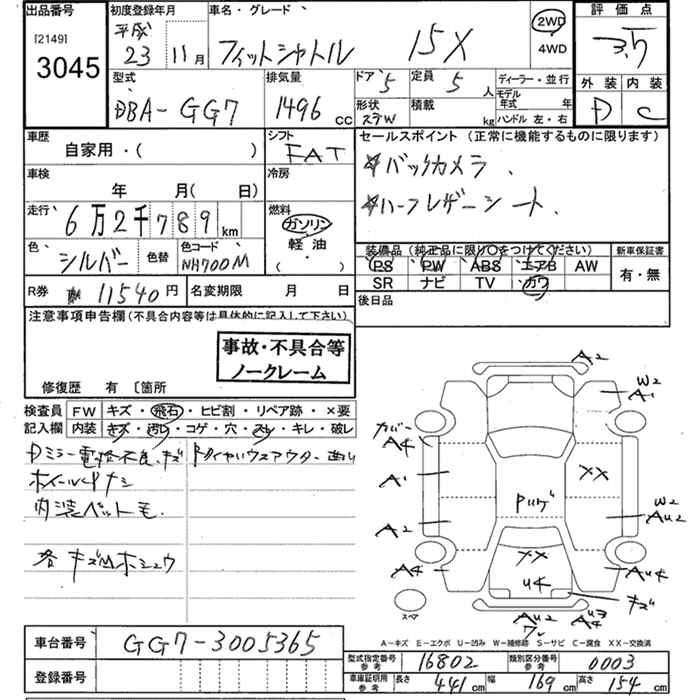 出品番号
[2149]
3045
初度登録年月
平成
23 11月
車名・グレード
フィットシャトル 15X
2WD
4WD
評価点
3.5
外装 内装
D C
型式
DBA-GG7
排気量
1496 cc
ドア 5
定員 5 人
形状 ステW
積載 kg
ディーラー・並行
モデル年式 年
ハンドル 左・右
車歴
自家用・( )
シフト
FAT
セールスポイント (正常に機能するものに限ります)
☆バックカメラ.
☆ハーフレザーシート.
車検
年 月( 日)
冷房
走行
6万2千789 km
燃料
ガソリン
軽油
( )
色
シルバー
色替
色コード
NH700M
装備品 (純正品に限り○をつけてください)
PS PW ABS エアB AW
SR ナビ TV カワ
新車保証書
有・無
R券 11540円
名変期限 月 日
後日品
注意事項申告欄 (不具合内容等は具体的に記入して下さい)
事故・不具合等
ノークレーム
修復歴 有 〔箇所
検査員
記入欄
FW キズ・飛石・ヒビ割・リペア跡・×要
内装 キズ・汚レ・コゲ・穴・スレ・キレ・破レ
Dミラー電格不良.キズ
ホイールCPナシ
内装ペット毛
各キズ
A2
W2
A1
カバー
A4
A1
XX
Pルーゲ
W2
AU2
A2
A4
XX
U4
AU4
キズ
AU2
U3
A4
ワレ
スペア
A－キズ E－エクボ U－凹み W－補修跡 S－サビ C－腐食 XX－交換済
車台番号
GG7-3005365
登録番号
型式指定番号
参考
16802
類別区分番号
参考
0003
車庫証明用
参考
長さ 441cm
幅 169cm
高さ 154cm